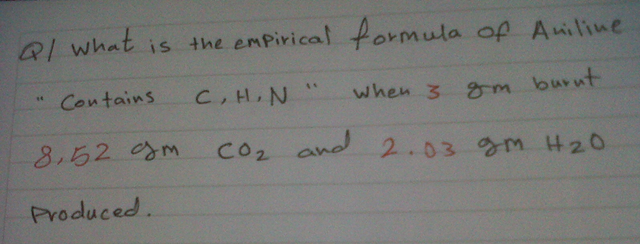 Q1 What is the empirical formula of Aniline
" Contains C, H, N " when 3 gm burnt
8,52 gm CO2 and 2.03 gm H2O
Produced.